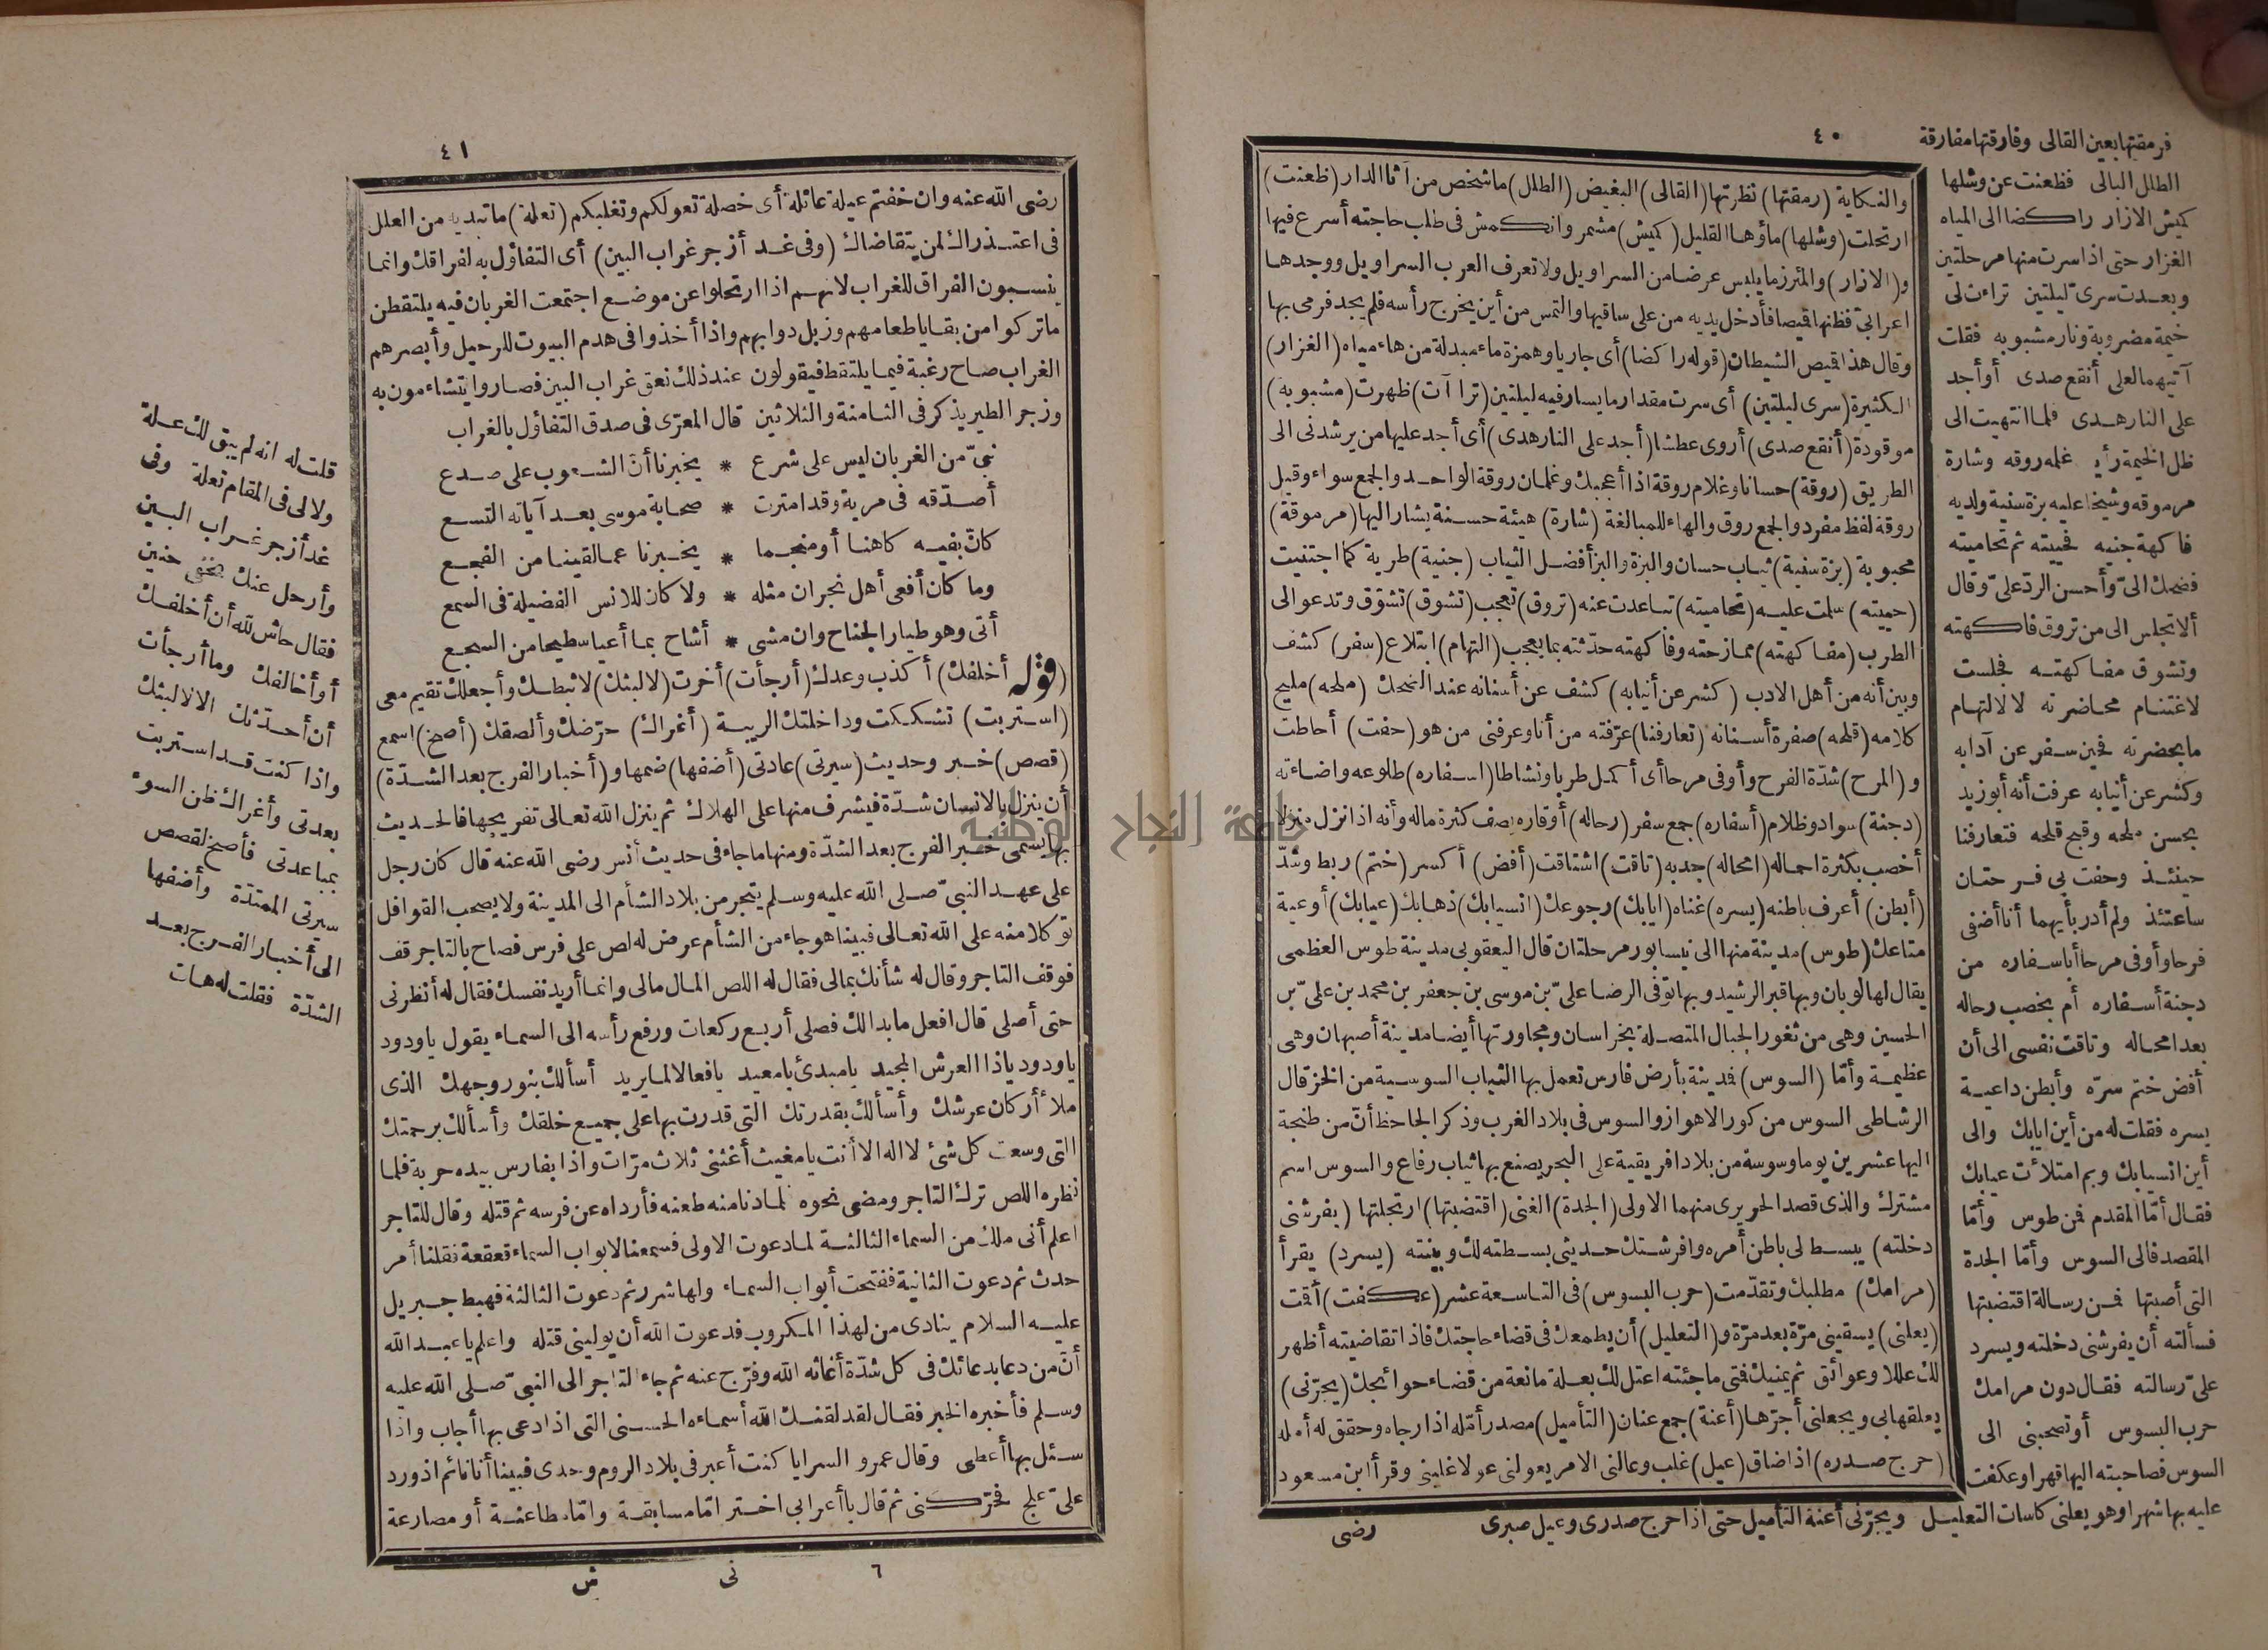 ٤٠
فرمقتها بعين القالى وفارقتها مفارقة
الطلل البالى فظعنت عن وشلها
كميش الازار راكضا الى المياه
الغزار حتى اذا سرت منها مرحلتين
وبعدت سرى ليلتين تراءت لى
خيمة مضروبة ونار مشبوبه فقلت
آتيهما لعلى أنقع صدى أو أجد
على النار هدى فلما انتهيت الى
ظل الخيمة رأيت غلمة روقه وشارة
مرموقه وشيخا عليه بزة سنية ولديه
فاكهة جنيه فحييته ثم تحاميته
فضحك الىّ وأحسن الردّ علىّ وقال
ألا تجلس الى من تروق فاكهته
وتشوق مفاكهته فجلست
لاغتنام محاضرته لا لالتهام
ما بحضرته فحين سفر عن آدابه
وكشر عن أنيابه عرفت أنه أبو زيد
بحسن ملحه وقبح قلحه فتعارفنا
حينئذ وحفت بى فرحتان
ساعتئذ ولم أدر بأيهما أنا أضفى
فرحا وأوفى مرحا أباسفاره من
دجنة أسفاره أم بخصب رحاله
بعد امحاله وتاقت نفسى الى أن
أفض ختم سرّه وأبطن داعية
يسره فقلت له من أين ايابك والى
أين انسيابك وبم امتلأت عيابك
فقال أمّا المقدم فمن طوس وأمّا
المقصد فالى السوس وأمّا الجدة
التى أصبتها فمن رسالة اقتضبتها
فسألته أن يفرشنى دخلته ويسرد
علىّ رسالته فقال دون مرامك
حرب البسوس أو تصحبنى الى
السوس فصاحبته اليها قهرا وعكفت
عليه بها شهرا وهو يعلنى كاسات التعليل ويجرّنى أعنة التأميل حتى اذا حرج صدرى وعيل صبرى
والنكاية (رمقتها) نظرتها (القالى) البغيض (الطلل) ما شخص من آثا الدار (ظعنت)
ارتحلت (وشلها) ماؤها القليل (كميش) مشمر وانكمش فى طلب حاجته أسرع فيها
و(الازار) والمئزر ما يلبس عرضا من السراويل ولا تعرف العرب السراويل ووجدها
اعرابىّ فظنها قميصا فأدخل يديه من على ساقيها والتمس من أين يخرج رأسه فلم يجد فرمى بها
وقال هذا قميص الشيطان (قوله راكضا) أى جاريا وهمزة ماء مبدلة من هاء مياه (الغزار)
الكثيرة (سرى ليلتين) أى سرت مقدار ما يسار فيه ليلتين (ترا آت) ظهرت (مشبوبة)
موقودة (أنقع صدى) أروى عطشا (أجد على النار هدى) أى أجد عليها من يرشدنى الى
الطريق (روقة) حسانا وغلام روقة اذا أعجبك وغلمان روقة الواحد والجمع سواء وقيل
روقة لفظ مفرد والجمع روق والهاء للمبالغة (شارة) هيئة حسنة يشار اليها (مرموقة)
محبوبة (بزة سنية) ثياب حسان والبزة والبز أفضل الثياب (جنية) طرية كما اجتنيت
(حييته) سلمت عليه (تحاميته) تباعدت عنه (تروق) تعجب (تشوق) تشوّق وتدعو الى
الطرب (مفاكهته) ممازحته وفاكهته حدّثته بما يعجب (التهام) ابتلاع (سفر) كشف
وبين أنه من أهل الادب (كشر عن أنيابه) كشف عن أسنانه عند الضحك (ملحه) مليح
كلامه (قلحه) صفرة أسنانه (تعارفنا) عرّفته من أنا وعرفنى من هو (حفت) أحاطت
و(المرح) شدّة الفرح وأوفى مرحا أى أكمل طربا ونشاطا (اسفاره) طلوعه واضاءته
(دجنة) سواد وظلام (أسفاره) جمع سفر (رحاله) أوقاره يصف كثرة ماله وأنه اذا نزل منزلا
أخصب بكثرة احماله (امحاله) جدبه (تاقت) اشتاقت (أفض) أكسر (ختم) ربط وشدّ
(أبطن) أعرف باطنه (يسره) غناه (ايابك) رجوعك (انسيابك) ذهابك (عيابك) أوعية
متاعك (طوس) مدينة منها الى نيسابور مرحلتان قال اليعقوبى مدينة طوس العظمى
يقال لها لوبان وبها قبر الرشيد وبها توفى الرضا علىّ بن موسى بن جعفر بن محمد بن علىّ بن
الحسين وهى من ثغور الجبال المتصلة بخراسان ومجاورتها أيضا مدينة أصبهان وهى
عظيمة وأمّا (السوس) فمدينة بأرض فارس تعمل بها الثياب السوسية من الخز قال
الرشاطى السوس من كور الاهواز والسوس فى بلاد الغرب وذكر الجاحظ أنّ من طنجة
اليها عشرين يوما وسوسة من بلاد افريقية على البحر يصنع بها ثياب رفاع والسوس اسم
مشترك والذى قصد الحريرى منهما الاولى (الجدة) الغنى (اقتضبتها) ارتجلتها (يفرشنى
دخلته) يبسط لى باطن أمره وافرشتك حديثى بسطته لك وبينته (يسرد) يقرأ
(مرامك) مطلبك وتقدّمت (حرب البسوس) فى التاسعة عشر (عكفت) أقمت
(يعلنى) يسقينى مرّة بعد مرّة و(التعليل) أن يطمعك فى قضاء حاجتك فاذا تقاضيته أظهر
لك عللا وعوائق ثم يمنيك فتى ما جئته اعتل لك بعلة مانعة من قضاء حوائجك (يجرّنى)
يعلقها بى ويجعلنى أجرّها (أعنة) جمع عنان (التأميل) مصدر أمّله اذا رجاه وحقق له أمله
(حرج صدره) اذا ضاق (عيل) غلب وعالنى الامر يعولنى عولا غلبنى وقرأ ابن مسعود
رضى
٤١
رضى الله عنه وان خفتم عيلة عائلة أى خصلة تعولكم وتغلبكم (تعلة) ما تبديه من العلل
فى اعتذارك لمن يتقاضاك (وفى غد أزجر غراب البين) أى التفاؤل به لفراقك وانما
ينسبون الفراق للغراب لانهم اذا ارتحلوا عن موضع اجتمعت الغربان فيه يلتقطن
ما تركوا من بقايا طعامهم وزبل دوابهم واذا أخذوا فى هدم البيوت للرحيل وأبصرهم
الغراب صاح رغبة فيما يلتقط فيقولون عند ذلك نعق غراب البين فصاروا يتشاءمون به
وزجر الطير يذكر فى الثامنة والثلاثين قال المعرّى فى صدق التفاؤل بالغراب
نبىّ من الغربان ليس على شرع * يخبرنا أنّ الشعوب على صدع
أصدّقه فى مرية وقد امترت * صحابة موسى بعد آياته التسع
كانّ بفيه كاهنا أو منجما * يخبرنا عما لقينا من الفجع
وما كان أفعى أهل نجران مثله * ولا كان للانس الفضيلة فى السمع
أتى وهو طيار الجناح وان مشى * أشاح بما أعيا سطيحا من السجع
(قوله أخلفك) أكذب وعدك (أرجأت) أخرت (لالبثك) لاثبطك وأجعلك تقيم معى
(استربت) تشككت وداخلتك الريبة (أغراك) حرّضك وألصقك (أصخ) اسمع
(قصص) خبر وحديث (سيرتى) عادتى (أضفها) ضمها و(أخبار الفرج بعد الشدّة)
أن ينزل بالانسان شدّة فيشرف منها على الهلاك ثم ينزل الله تعالى تفريجها فالحديث
بها يسمى خبر الفرج بعد الشدّة ومنها ما جاء فى حديث أنس رضى الله عنه قال كان رجل
على عهد النبىّ صلى الله عليه وسلم يتجر من بلاد الشأم الى المدينة ولا يصحب القوافل
توكلا منه على الله تعالى فبينا هو جاء من الشأم عرض له لص على فرس فصاح بالتاجر قف
فوقف التاجر وقال له شأنك بمالى فقال له اللص المال مالى وانما أريد نفسك فقال له أنظرنى
حتى أصلى قال افعل ما بدا لك فصلى أربع ركعات ورفع رأسه الى السماء يقول يا ودود
يا ودود يا ذا العرش المجيد يا مبدئ يا معيد يا فعالا لما يريد أسألك بنور وجهك الذى
ملأ أركان عرشك وأسألك بقدرتك التى قدرت بها على جميع خلقك وأسألك برحمتك
التى وسعت كل شئ لا اله الا أنت يا مغيث أغثنى ثلاث مرّات واذا بفارس بيده حربة فلما
نظره اللص ترك التاجر ومضى نحوه فلما دنا منه طعنه فأرداه عن فرسه ثم قتله وقال للتاجر
اعلم أنى ملك من السماء الثالثة لما دعوت الاولى فسمعنا لابواب السماء قعقعة فقلنا أمر
حدث ثم دعوت الثانية ففتحت أبواب السماء ولها شرر ثم دعوت الثالثة فهبط جبريل
عليه السلام ينادى من لهذا المكروب فدعوت الله أن يولينى قتله واعلم يا عبد الله
أنّ من دعا بدعائك فى كل شدّة أغاثه الله وفرّج عنه ثم جاء التاجر الى النبىّ صلى الله عليه
وسلم فأخبره الخبر فقال لقد لقنك الله أسماءه الحسنى التى اذا دعى بها أجاب واذا
سئل بها أعطى وقال عمرو السرايا كنت أعبر فى بلاد الروم وحدى فبينا أنا نائم اذ ورد
علىّ علج فحرّكنى ثم قال يا أعرابى اختر امّا مسابقة وامّا مطاعنة أو مصارعة
قلت له انه لم يبق لك علة
ولا لى فى المقام تعلة وفى
غد أزجر غراب البين
وأرحل عنك بخفى حنين
فقال حاش لله أن أخلفك
أو أخالفك وما أرجأت
أن أحدّثك الا لالبثك
واذا كنت قد استربت
بعدتى وأغراك ظن السوء
بمباعدتى فأصخ لقصص
سيرتى الممتدّة وأضفها
الى أخبار الفرج بعد
الشدّة فقلت له هات
٦ نى ش
جامعة النجاح الوطنية